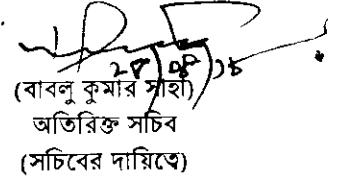 (বাবলু কুমার সাহা)
অতিরিক্ত সচিব
(সচিবের দায়িত্বে)